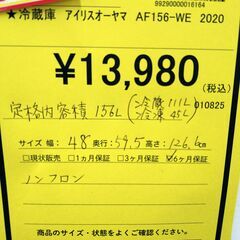 99290000016164
★冷蔵庫 アイリスオーヤマ AF156-WE 2020
¥13,980
(税込)
定格内容積 156L (冷蔵 111L 冷凍 45L)
010825
サイズ 幅: 48 奥行: 59.5 高さ: 126.6cm
□現状販売 □1ヵ月保証 □3ヶ月保証 ☑6ヶ月保証
ノンフロン
商品のサイズ・状態をよくご確認ください。